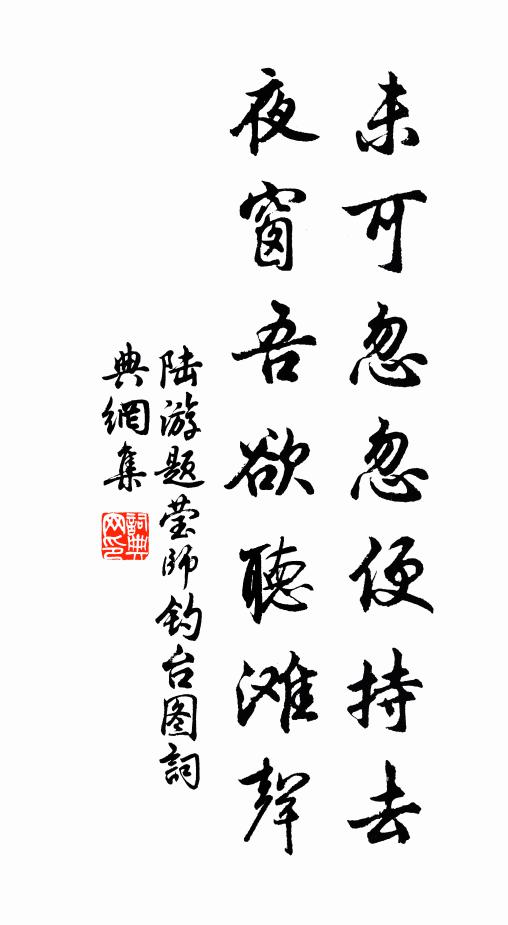 未可忽忽便持去
夜窗吾欲聽滩聲
陆游题莹师钓台图詞
典網集
詞典
网印